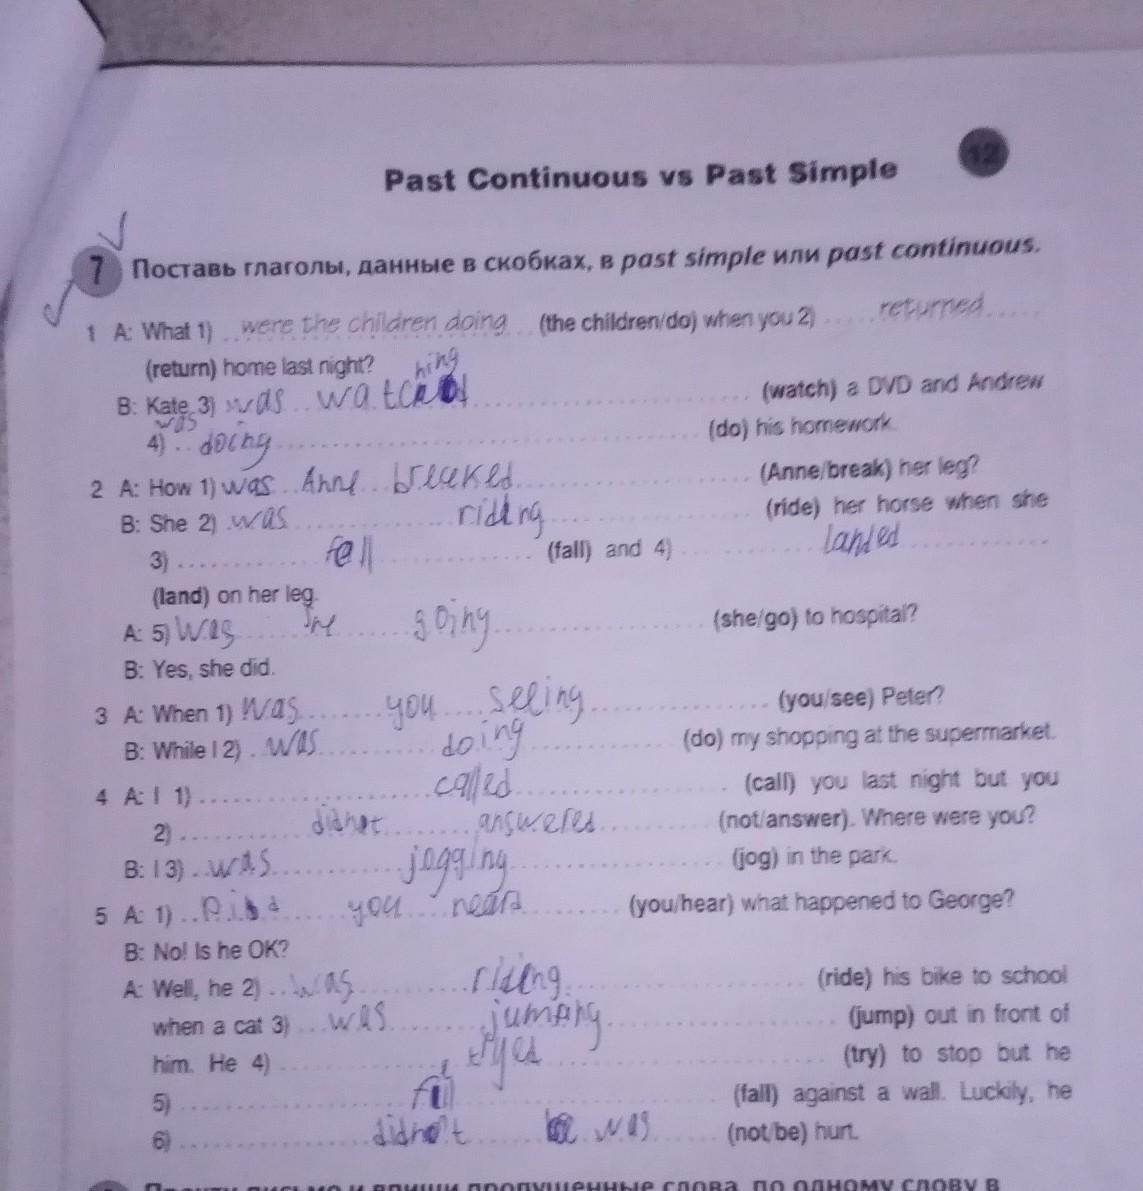 12
Past Continuous vs Past Simple
7 Поставь глаголы, данные в скобках, в past simple или past continuous.
1 A: What 1) were the children doing (the children/do) when you 2) returned
(return) home last night?
hing
B: Kate 3) was watc (watch) a DVD and Andrew
was
4) doing (do) his homework.
2 A: How 1) was Anne breaked (Anne/break) her leg?
B: She 2) was riding (ride) her horse when she
3) fell (fall) and 4) landed
(land) on her leg.
A: 5) was she going (she/go) to hospital?
B: Yes, she did.
3 A: When 1) was you seeing (you/see) Peter?
B: While I 2) was doing (do) my shopping at the supermarket.
4 A: I 1) called (call) you last night but you
2) didnot answered (not/answer). Where were you?
B: I 3) was jogging (jog) in the park.
5 A: 1) Did you heard (you/hear) what happened to George?
B: No! Is he OK?
A: Well, he 2) was riding (ride) his bike to school
when a cat 3) was jumping (jump) out in front of
him. He 4) tryed (try) to stop but he
5) fell (fall) against a wall. Luckily, he
6) didno't was (not/be) hurt.